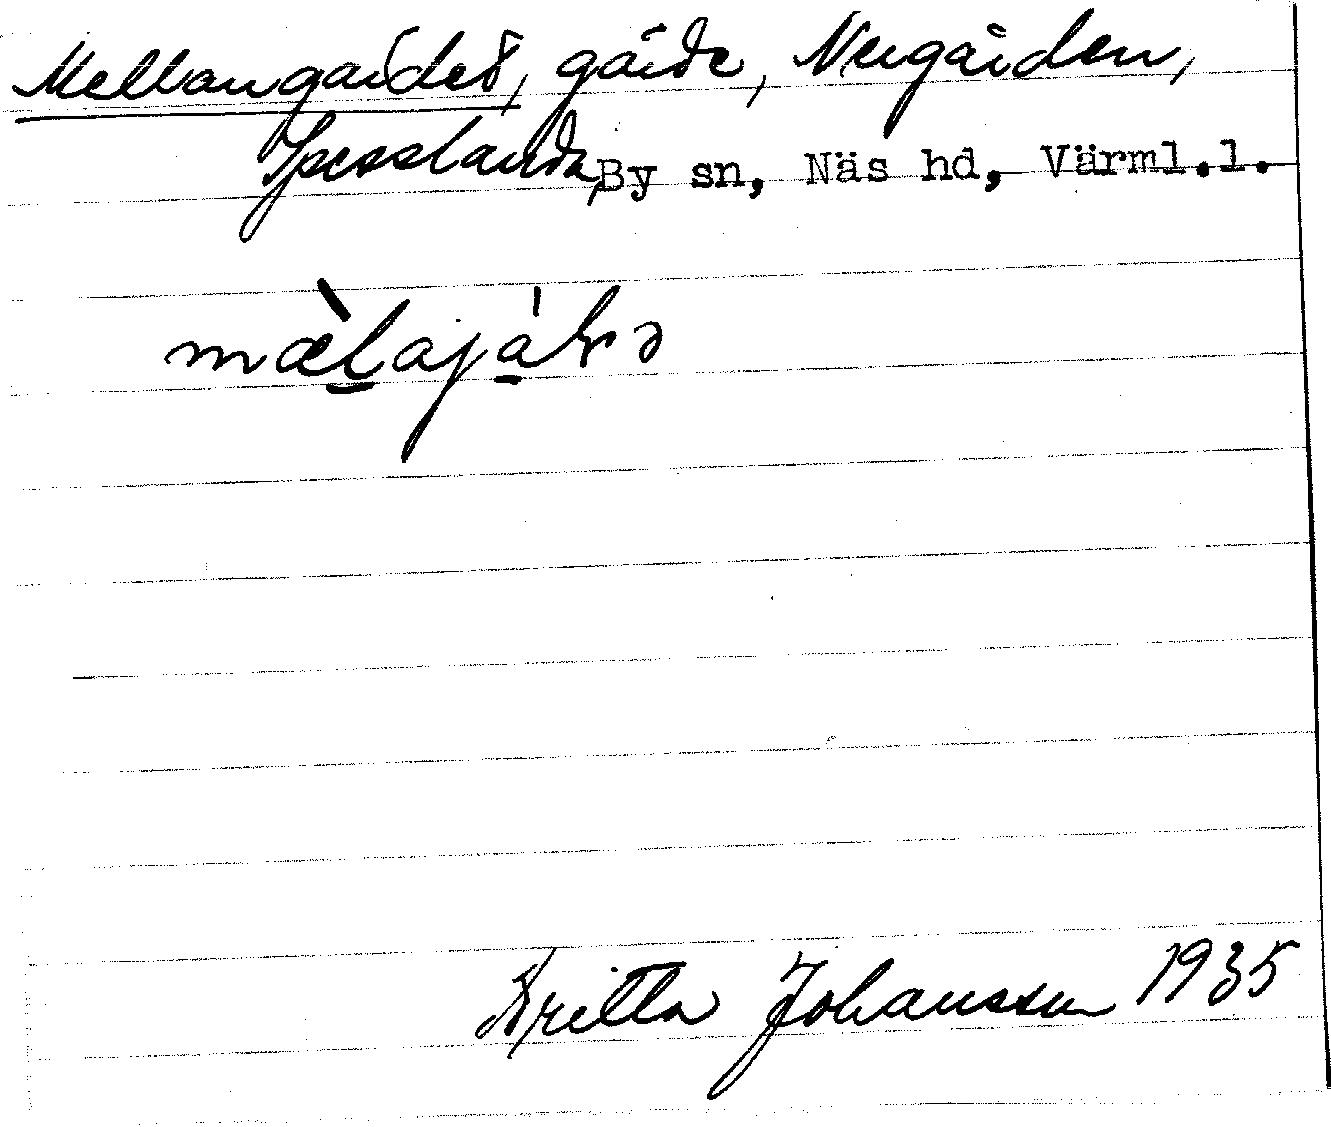 Mellangärdet, gärde, Nergården,
Spesslanda, By sn, Näs hd, Värml.l.
Britta Johansson 1935